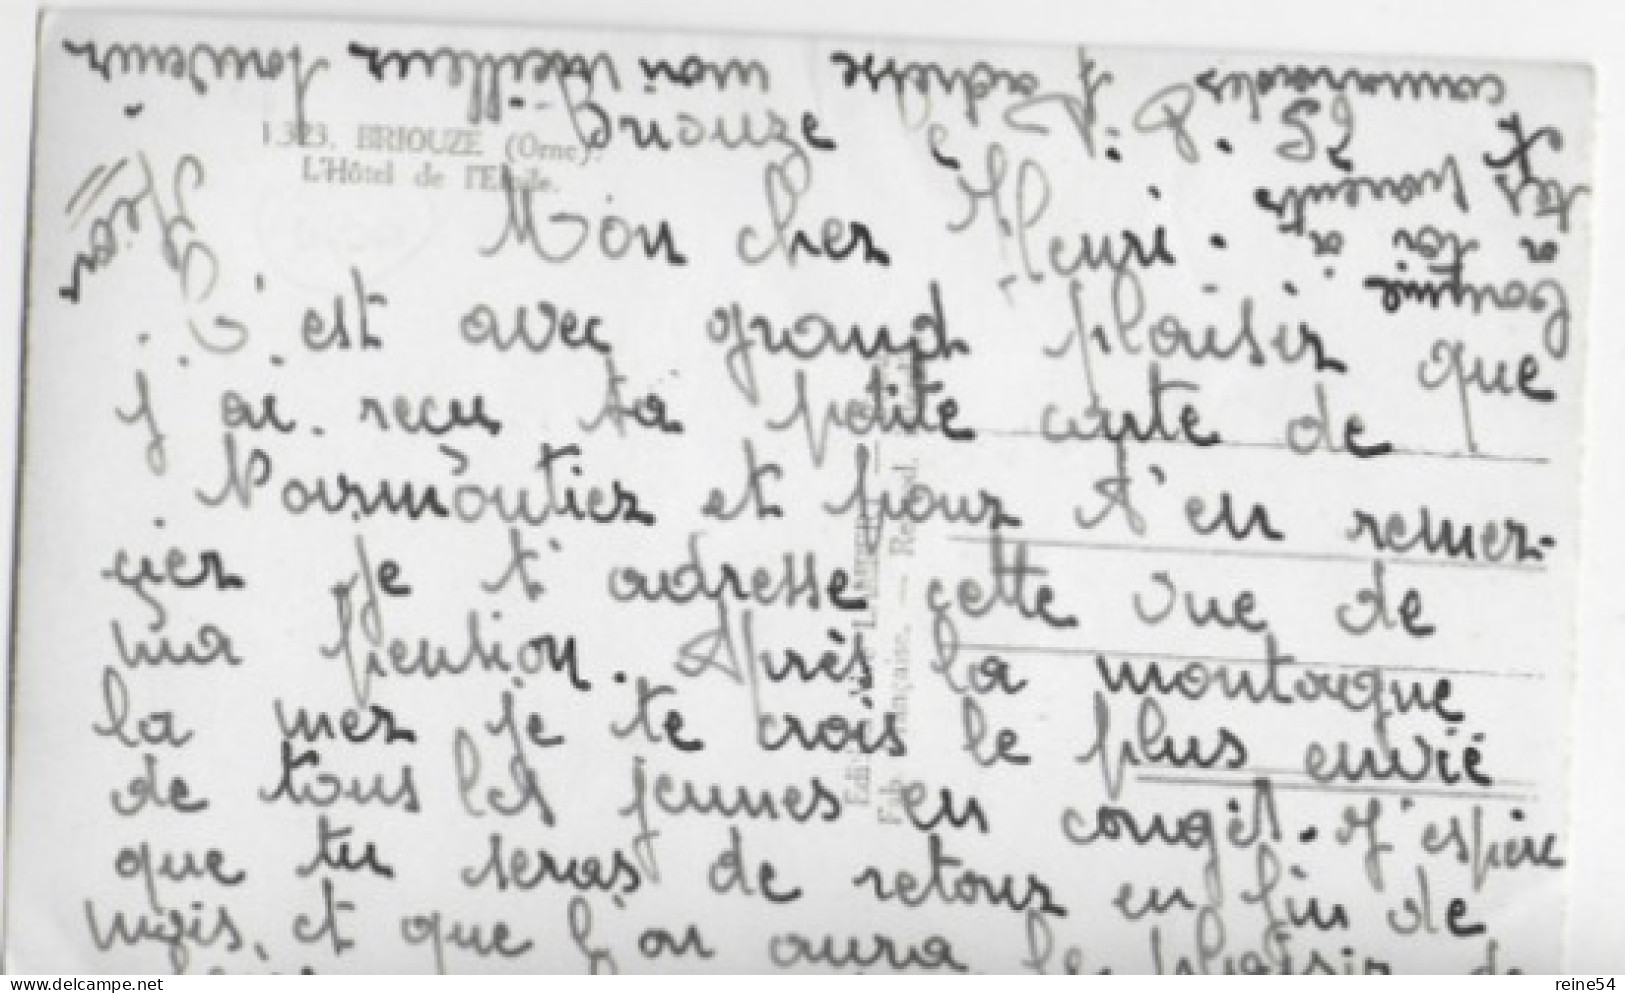 1.323. BRIOUZE (Orne).
L'Hôtel de l'Etoile.
Briouze le
Mon cher Henri.
C'est avec grand plaisir que
j'ai reçu ta petite carte de
Noirmoutier et pour t'en remer-
cier je t'adresse cette vue de
ma pention. Après la montagne
la mer je te crois le plus envié
de tous les jeunes en congét. J'espère
que tu seras de retour en fin de
mois, et que l'on aura le plaisir de
Comme
a toi a
tes parents
camarades j'adresse mon meilleur souvenir
Jean
reine54